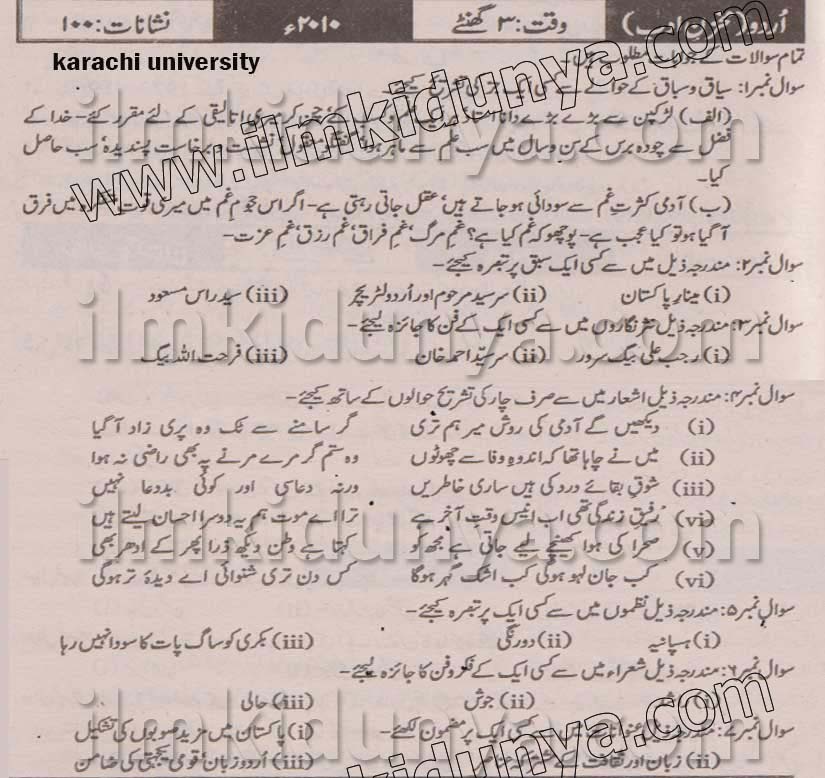 اُردو (ب)
وقت: ۳ گھنٹے
۲۰۱۰ء
نشانات: ۱۰۰
karachi university
تمام سوالات کے جوابات مطلوب ہیں۔
سوال نمبر۱: سیاق و سباق کے حوالے سے کسی ایک جز کی تشریح کیجئے۔
(الف) لڑکپن سے بڑے بڑے دانا استاد ہر ایک علم و کسب کے چن کر میری اتالیقی کے لئے مقرر کئے۔ خدا کے
فضل سے چودہ برس کے سن و سال میں سب علم سے ماہر ہوا۔ گفتگو معقول، نشست و برخاست پسندیدہ، سب حاصل
کیا۔
(ب) آدمی کثرتِ غم سے سودائی ہو جاتے ہیں، عقل جاتی رہتی ہے۔ اگر اس ہجومِ غم میں میری قوت متفکرہ میں فرق
آگیا ہو تو کیا عجب ہے۔ پوچھو کہ غم کیا ہے؟ غمِ مرگ، غمِ فراق، غم رزق، غمِ عزت۔
سوال نمبر۲: مندرجہ ذیل میں سے کسی ایک سبق پر تبصرہ کیجئے۔
(i) مینارِ پاکستان (ii) سرسید مرحوم اور اُردو لٹریچر (iii) سید راس مسعود
سوال نمبر۳: مندرجہ ذیل نثر نگاروں میں سے کسی ایک کے فن کا جائزہ لیجئے۔
(i) رجب علی بیگ سرور (ii) سرسیّد احمد خان (iii) فرحت اللہ بیگ
سوال نمبر۴: مندرجہ ذیل اشعار میں سے صرف چار کی تشریح حوالوں کے ساتھ کیجئے۔
(i) دیکھیں گے آدمی کی روش میر ہم تری گر سامنے سے ٹک وہ پری زاد آگیا
(ii) میں نے چاہا تھا کہ اندوہِ وفا سے چھوٹوں وہ ستم گر مرے مرنے پہ بھی راضی نہ ہوا
(iii) شوقِ بقائے درد کی ہیں ساری خاطریں ورنہ دعا سی اور کوئی بددعا نہیں
(vi) رفیقِ زندگی تھی اب انیس وقتِ آخر ہے ترا اے موت ہم یہ دوسرا احسان لیتے ہیں
(v) صحرا کی ہوا کھینچے لیے جاتی ہے مجھ کو کہتا ہے وطن دیکھ ذرا پھر کے ادھر بھی
(vi) کب جان لہو ہوگی کب اشک گہر ہوگا کس دن تری شنوائی اے دیدۂ تر ہوگی
سوال نمبر۵: مندرجہ ذیل نظموں میں سے کسی ایک پر تبصرہ کیجئے۔
(i) ہسپانیہ (ii) دورنگی (iii) بکری کو ساگ پات کا سودا نہیں رہا
سوال نمبر۶: مندرجہ ذیل شعراء میں سے کسی ایک کے فکر و فن کا جائزہ لیجئے۔
(i) (ii) جوش (iii) حالی
سوال نمبر۷: مندرجہ ذیل عنوانات میں سے کسی ایک پر مضمون لکھئے۔ (i) پاکستان میں مزید صوبوں کی تشکیل
(ii) زبان اور ثقافت کے (iii) اُردو زبان، قومی یکجہتی کی ضامن
www.ilmkidunya.com
ilmkidunya.com
ilmkidunya.com
ilmkidunya.com
kidunya.com